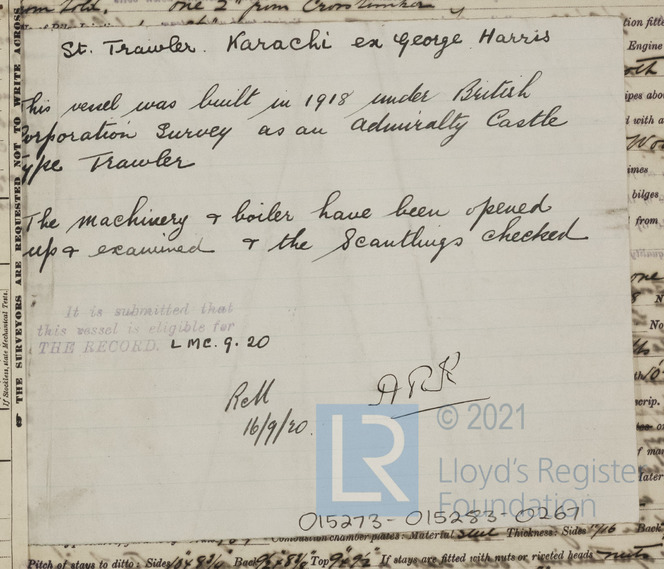 St. Trawler. Karachi ex George Harris
his vessel was built in 1918 under British
orporation Survey as an Admiralty Castle
ype Trawler
The machinery & boiler have been opened
up & examined & the Scantlings checked
It is submitted that
this vessel is eligible for
THE RECORD. LMC. 9. 20
16/9/20.
LR
© 2021
Lloyd's Register
Foundation
015273-015283-0267
THE SURVEYORS ARE REQUESTED NOT TO WRITE ACROSS
If Stockless, state Mechanical Tests.
one 2" from Crosstunker
tion fitte
Engine
ipes abo
d with a
imes
bilges
from
one
No
crip.
Combustion chamber plates: Material Steel Thickness: Sides Back
Pitch of stays to ditto: Sides Back Top If stays are fitted with nuts or riveted heads nuts